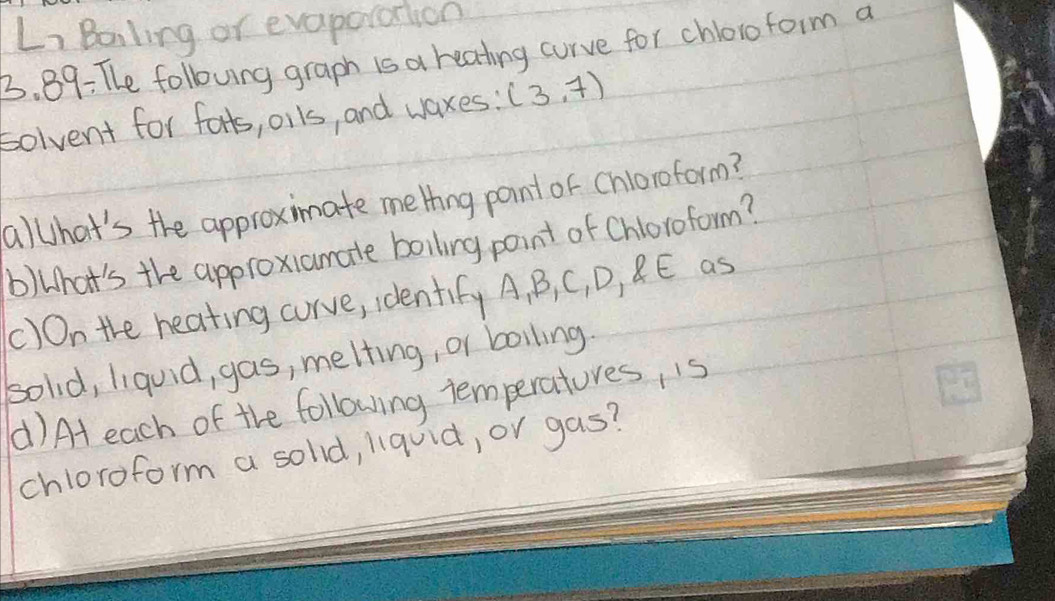 L→ Boiling or evaporation
3.89-The following graph is a heating curve for chloroform a
solvent for fats, oils, and waxes: (3.7)
a) What's the approximate melting point of chloroform?
b) What's the approxiamate boiling point of Chloroform?
c) On the heating curve, identify A, B, C, D, & E as
solid, liquid, gas, melting, or boiling.
d) At each of the following temperatures, is
chloroform a solid, liquid, or gas?